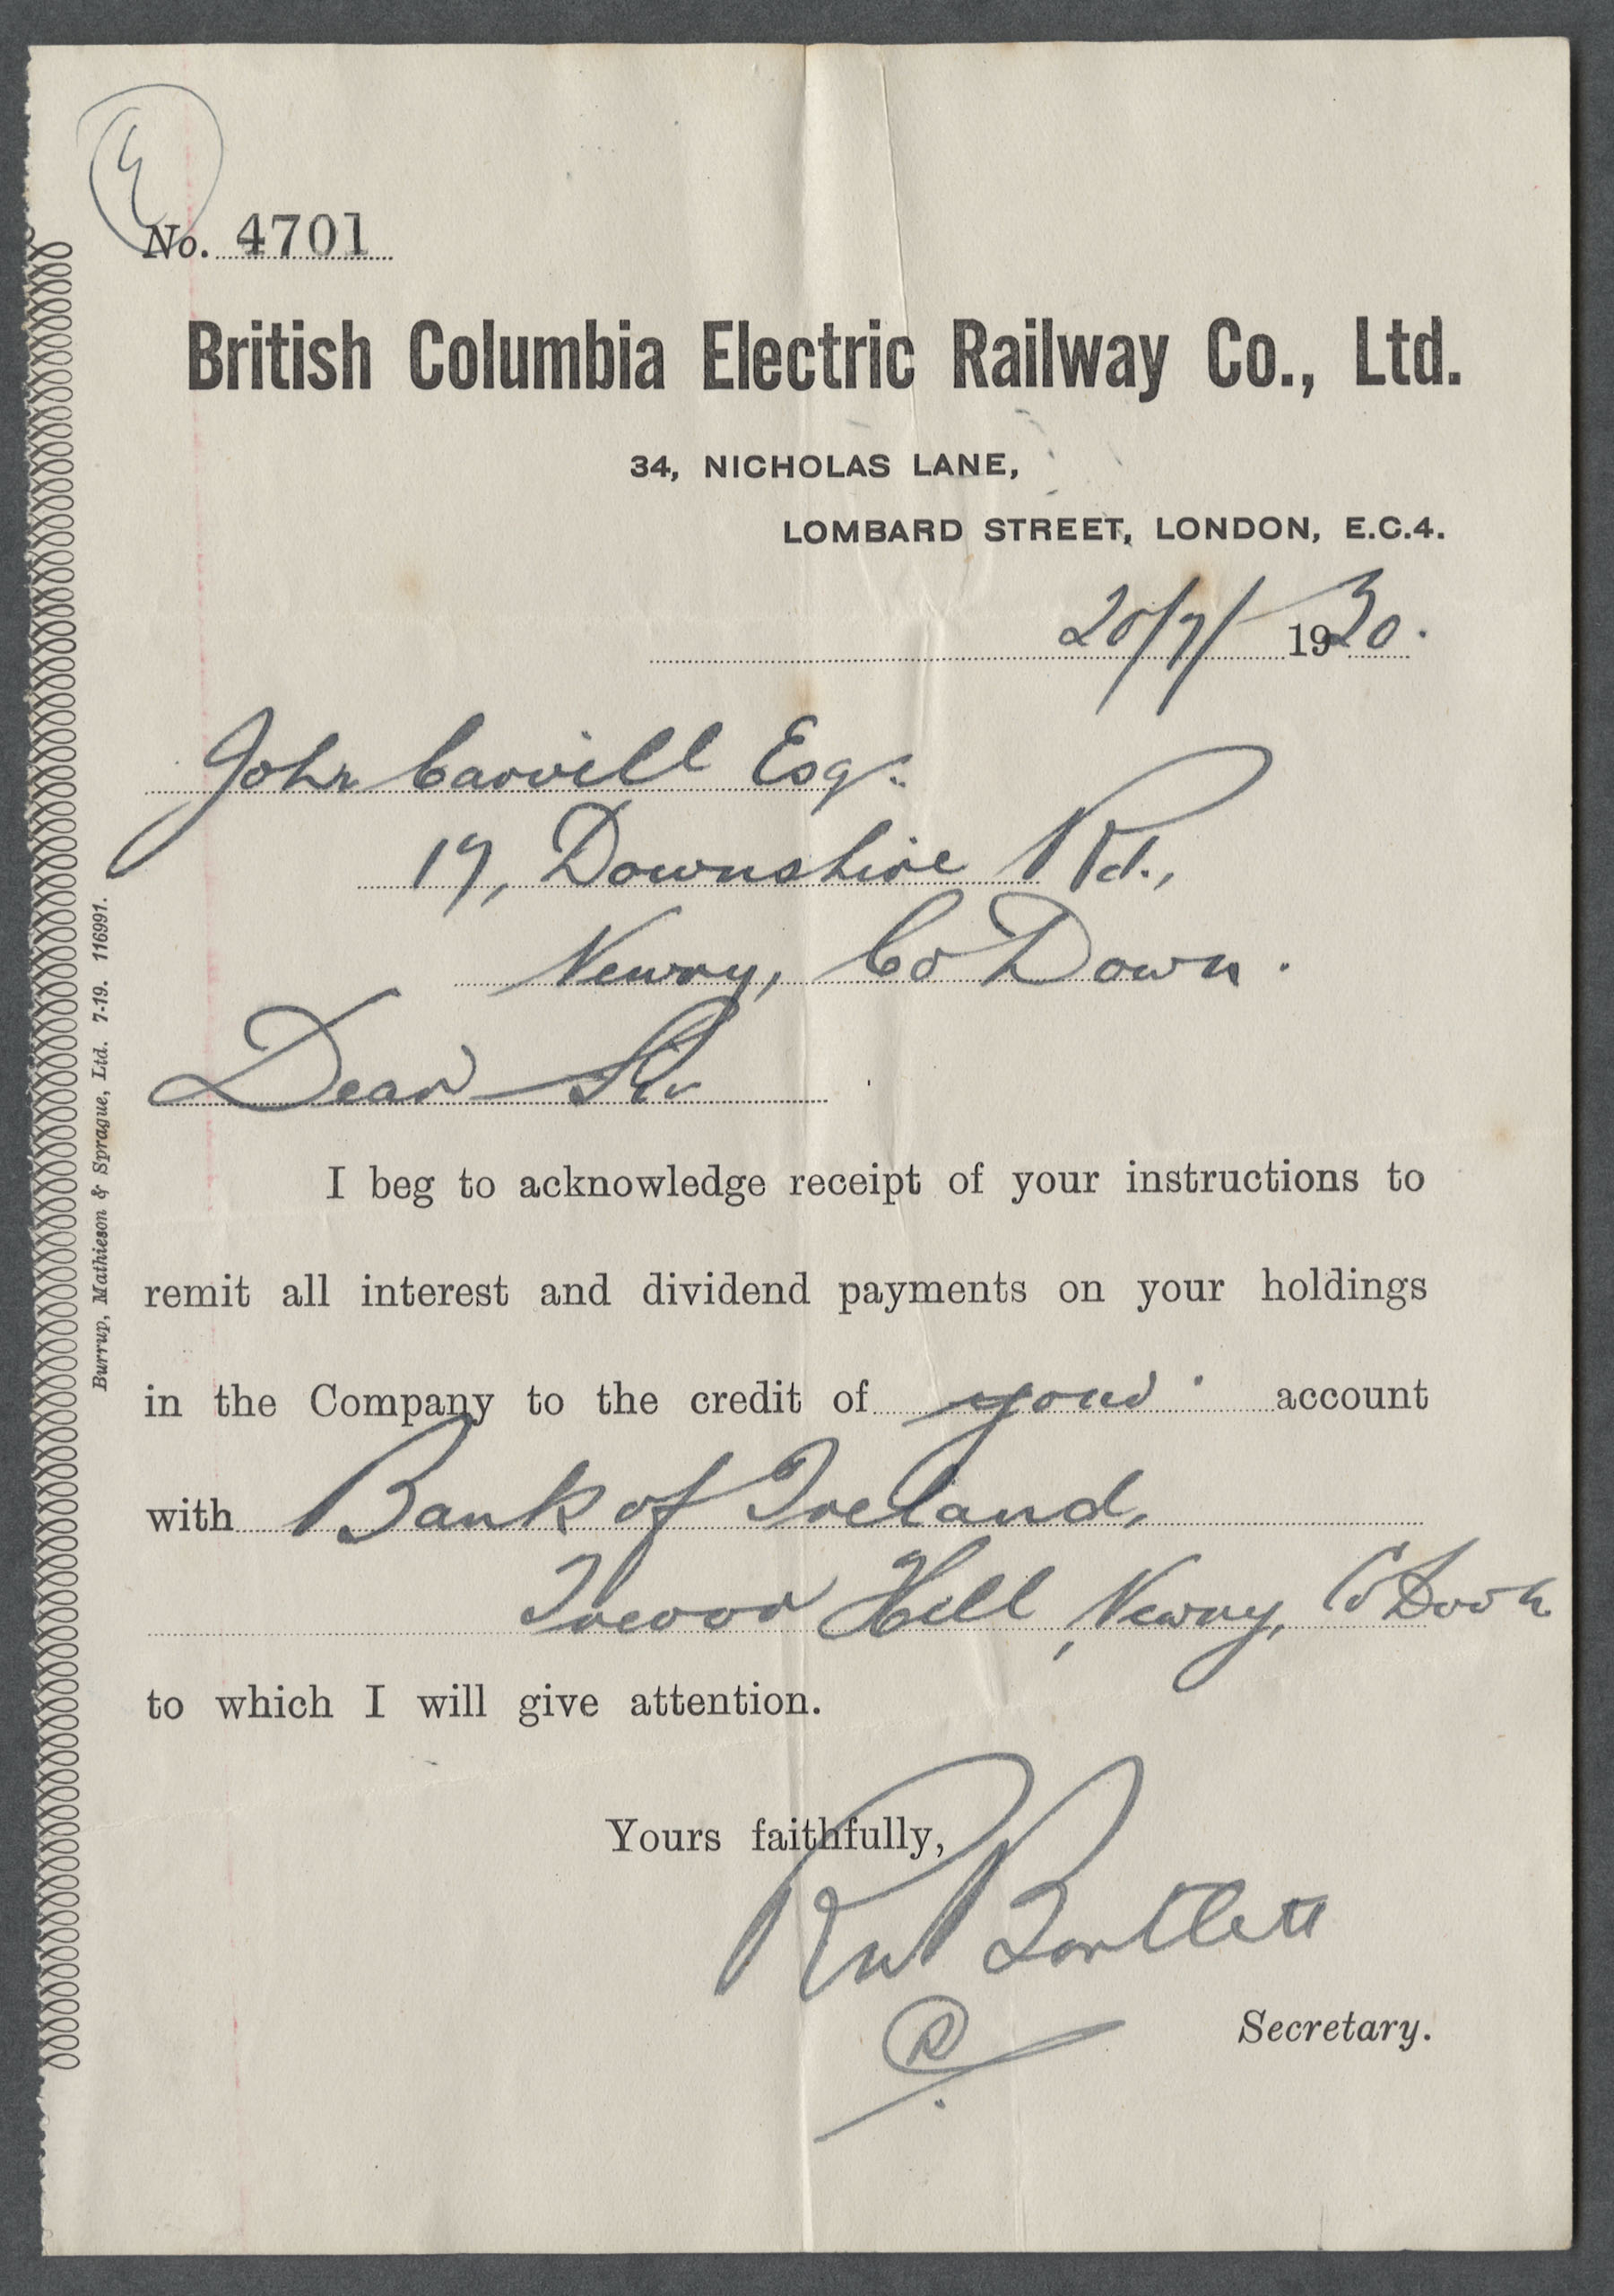 No. 4701
British Columbia Electric Railway Co., Ltd.
34, NICHOLAS LANE,
LOMBARD STREET, LONDON, E.C.4.
20/7/ 1930.
John Carvill Esqr.
17, Downshire Rd.,
Newry, Co Down.
Dear Sir
I beg to acknowledge receipt of your instructions to
remit all interest and dividend payments on your holdings
in the Company to the credit of your account
with Bank of Ireland,
Trevor Hill, Newry, Co Down
to which I will give attention.
Yours faithfully,
Bartlett
R
Secretary.
Burrup, Mathieson & Sprague, Ltd. 7-19. 116991.